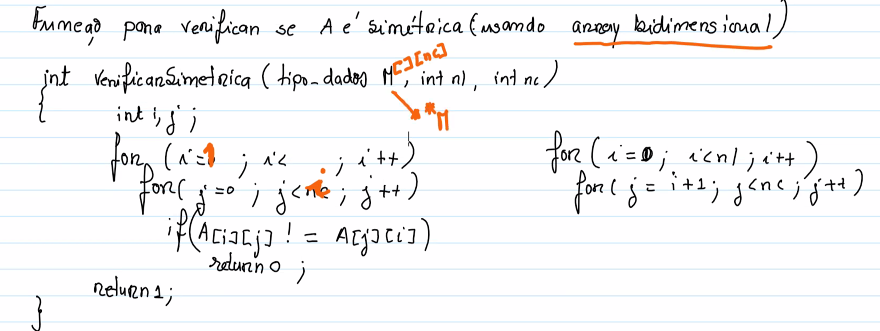 Função para verificar se A é simétrica (usando array bidimensional)
int verificarSimetrica (tipo_dados M[][nc], int nl, int nc)
{
**M
int i, j ;
for (i=1 ; i< ; i++)
for( j=0 ; j<i ; j++)
if(A[i][j] != A[j][i])
return 0 ;
return 1;
}
for (i=0 ; i<nl ; i++)
for( j = i+1 ; j<nc ; j++)